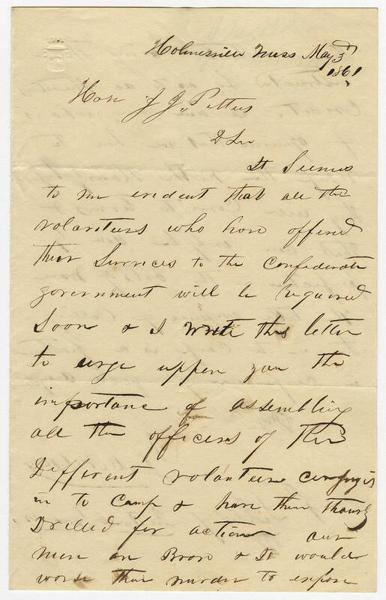 Holmesville Miss May 3rd
1861
Hon J J. Pettus
D Sir
It Seems
to me evident that all the
volunteers who have offered
their Services to the Confederate
government will be required
Soon & I write this letter
to urge uppon you the
importance of assembling
all the officers of the
Different volunteer companys
in to Camp & have them
Drilled for action our
men are Brave & It would
worse than murder to expose